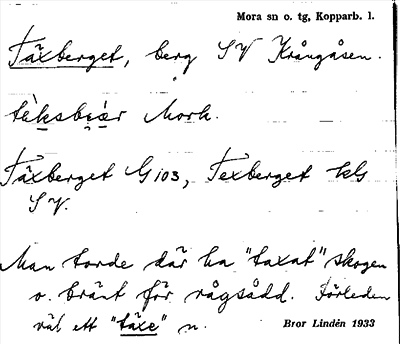 Mora sn o. tg, Kopparb. l.
Täxberget, berg SV Krångåsen.
tèksbɛ̀ær Mork.
Täxberget G 103, Texberget kbl
SV.
Man torde där ha "taxat" skogen
o. bränt för rågsådd. Förleden
väl ett "täxe" n.
Bror Lindén 1933